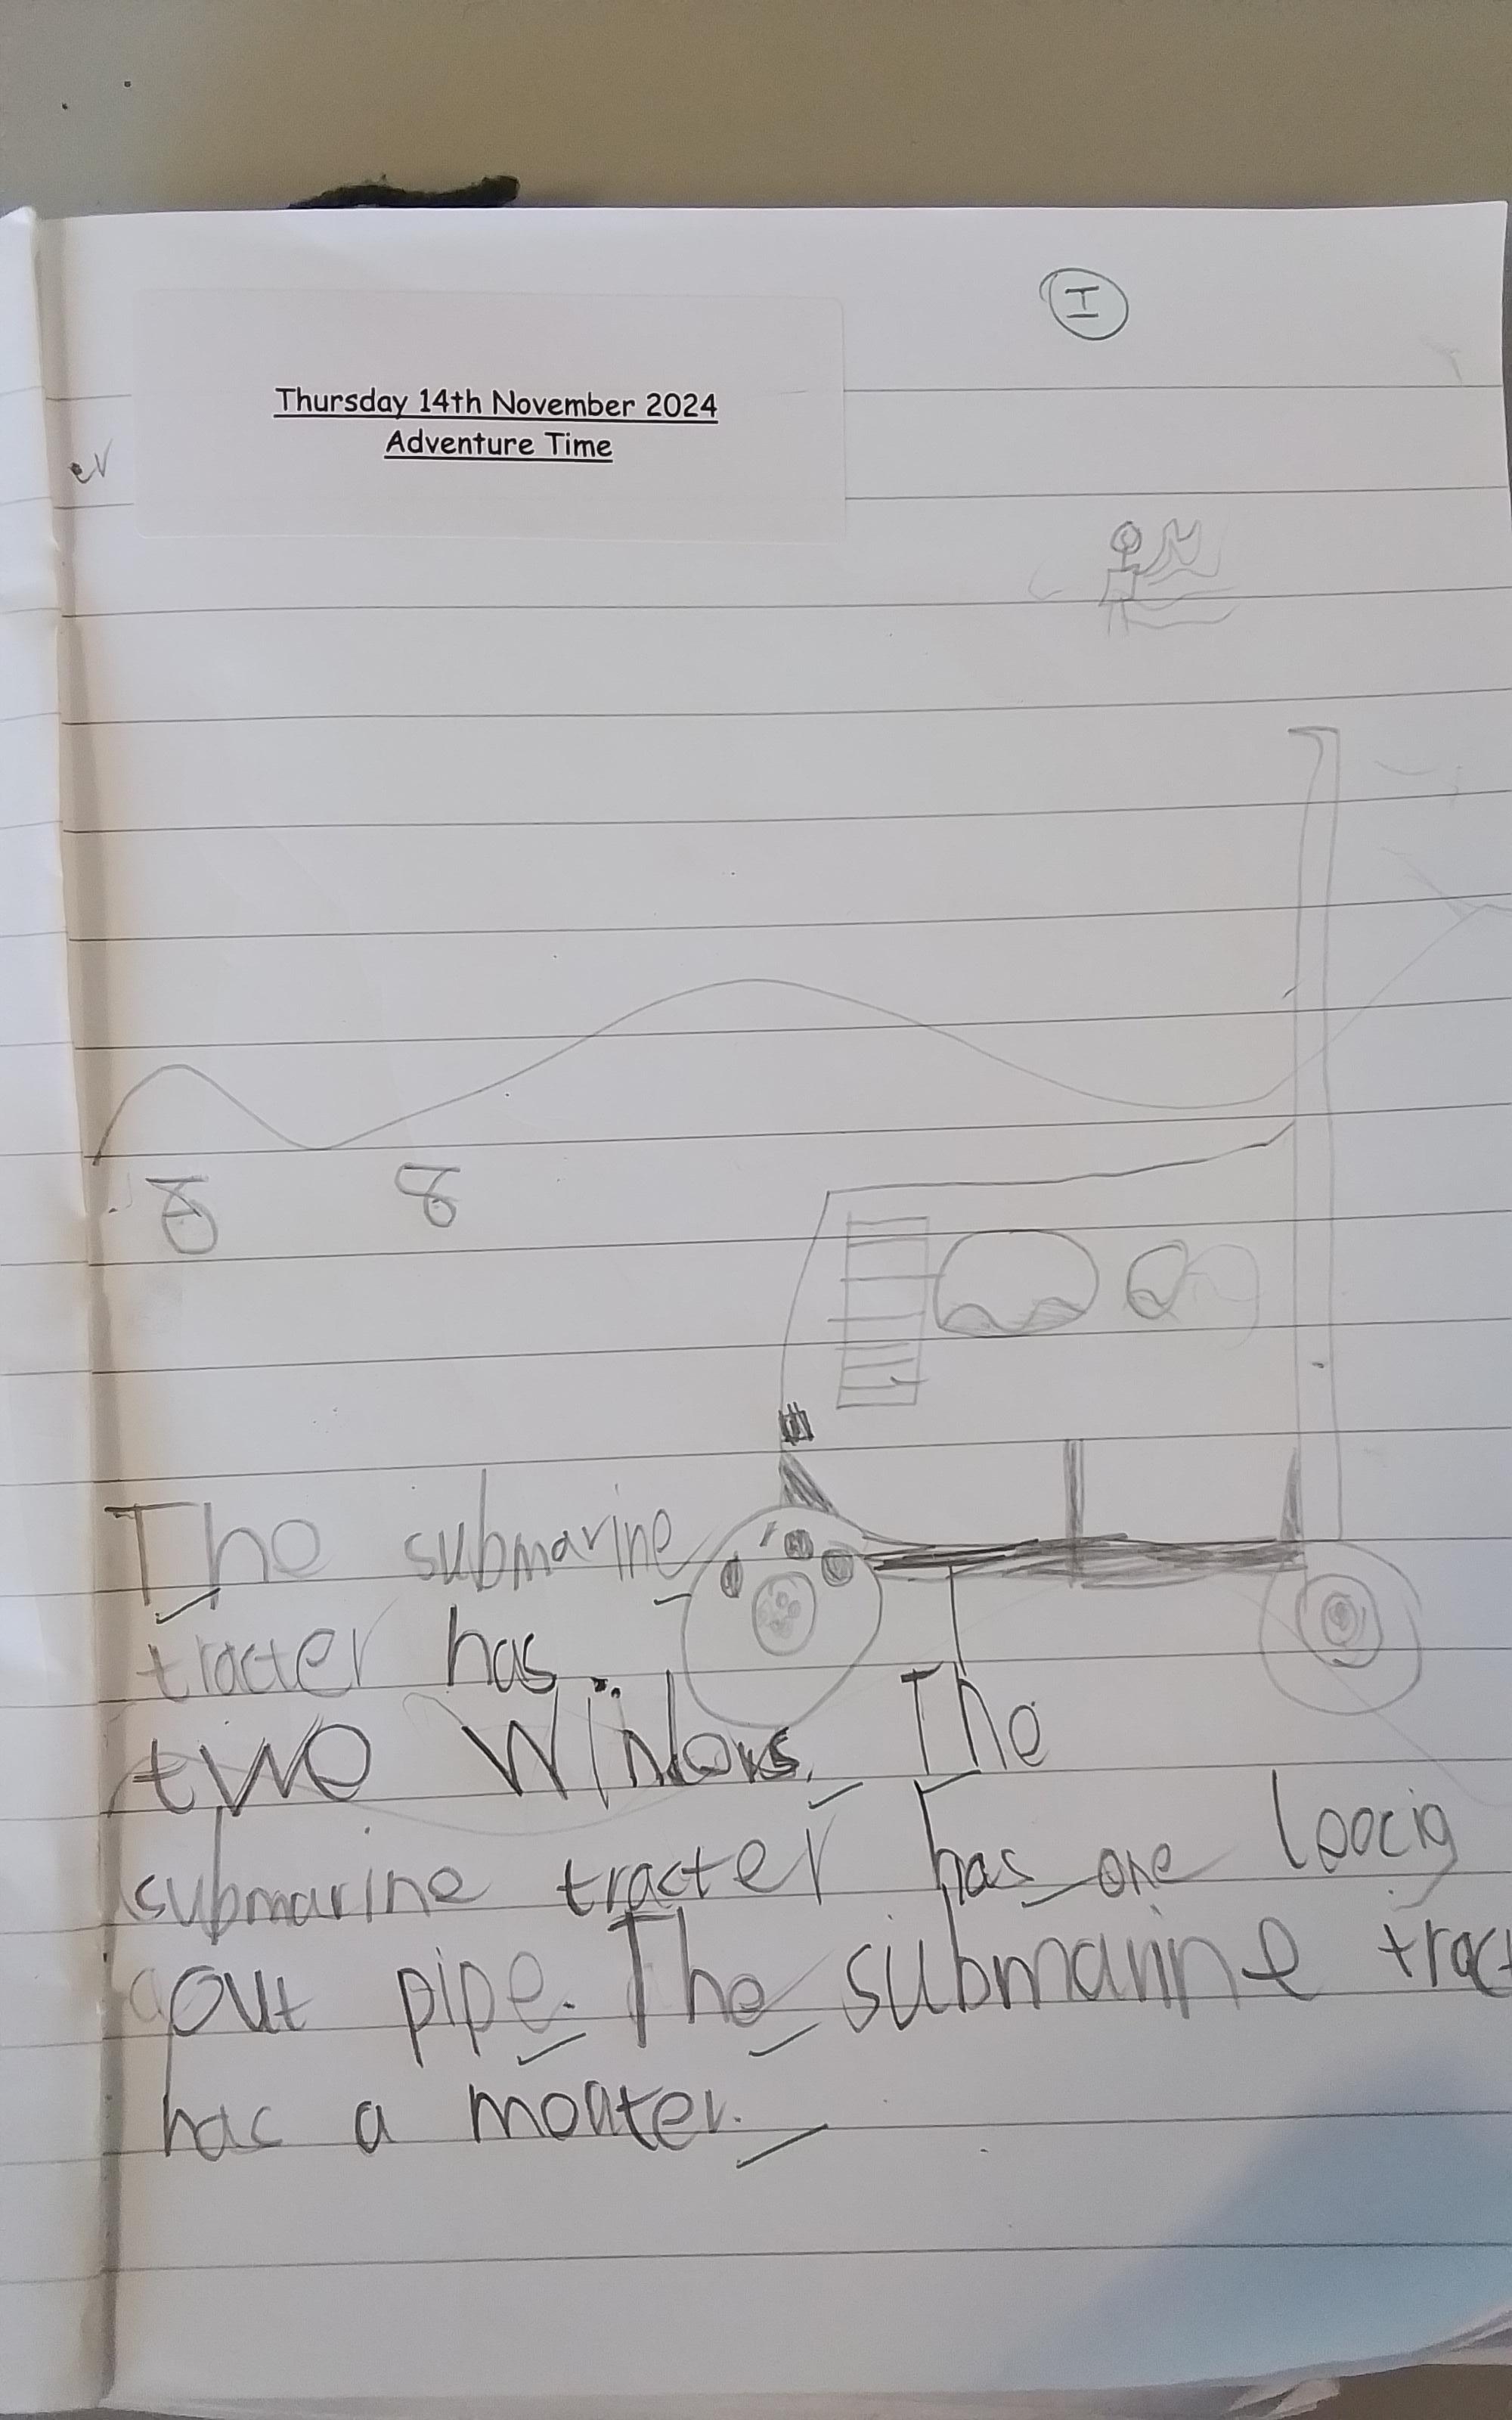 I
Thursday 14th November 2024
Adventure Time
er
8 8
The submarine
tracter has
two Windows. The
submarine tracter has one loocig
out pipe. The submarine tract
has a moater.